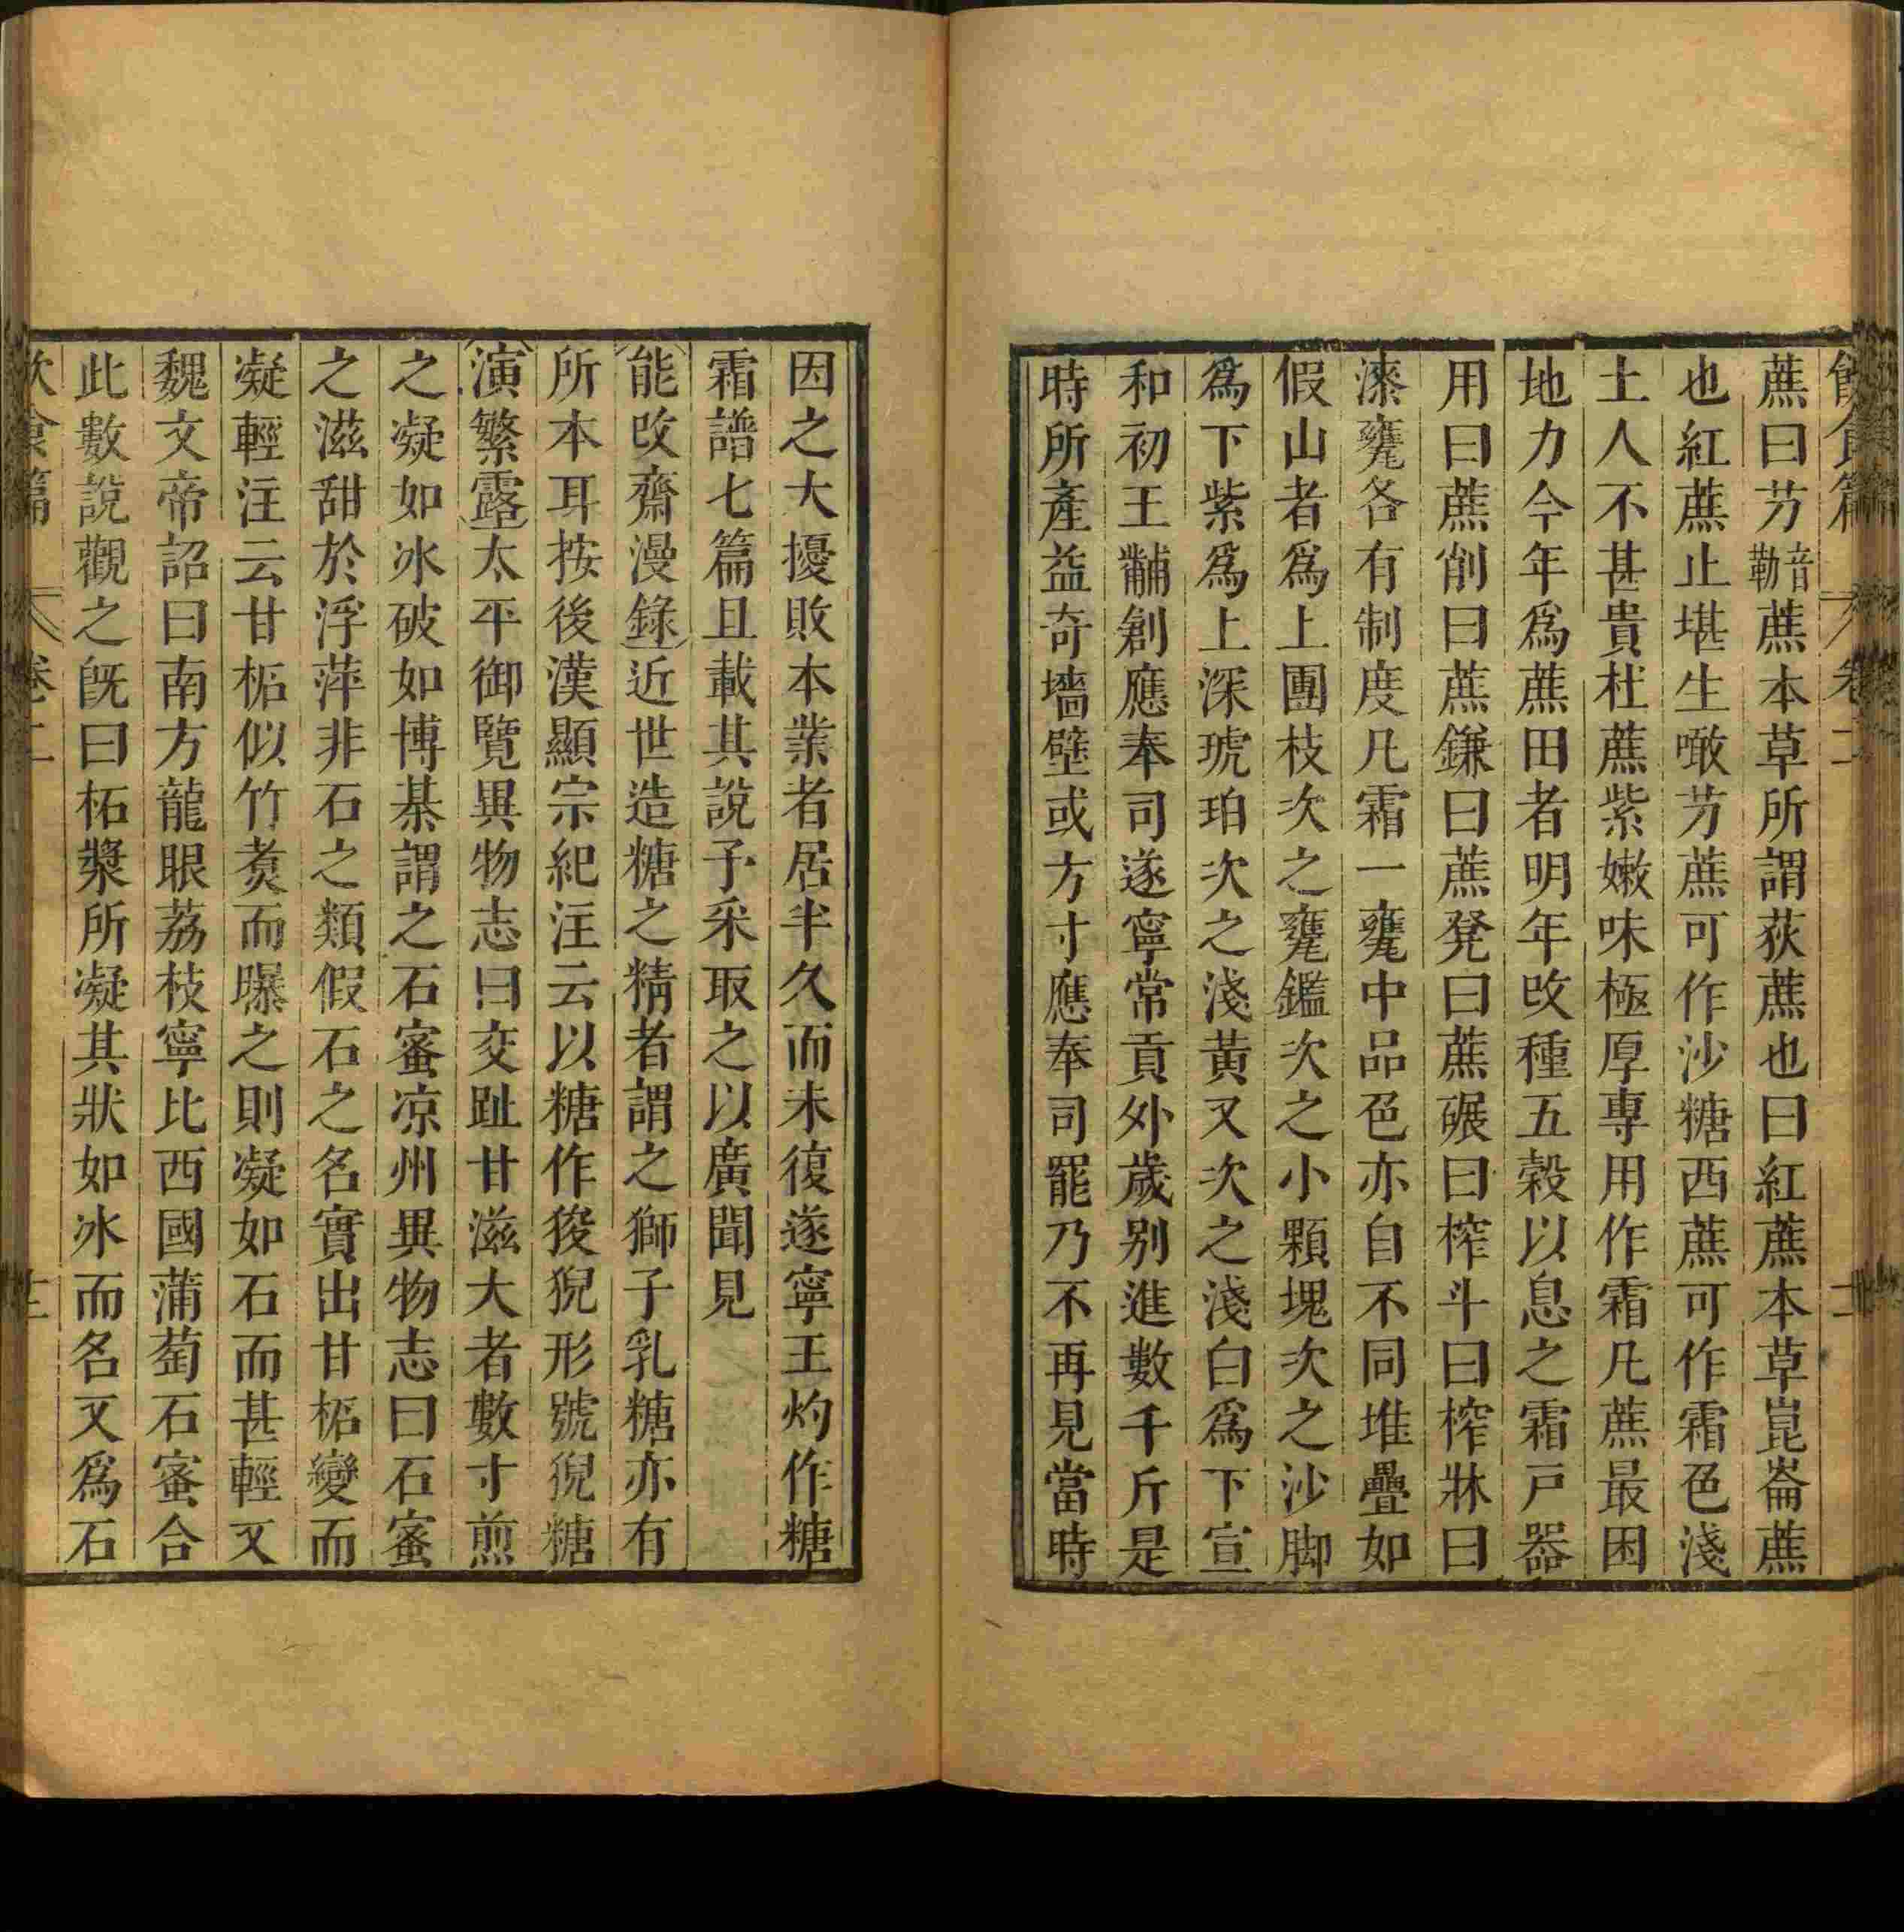 飲食篇 卷二 十二
蔗曰艻音勒蔗本草所謂荻蔗也曰紅蔗本草崑崙蔗
也紅蔗止堪生噉艻蔗可作沙糖西蔗可作霜色淺
土人不甚貴杜蔗紫嫩味極厚專用作霜凡蔗最困
地力今年爲蔗田者明年改種五榖以息之霜戸器
用曰蔗削曰蔗鎌曰蔗凳曰蔗碾曰榨斗曰榨牀曰
漆甕各有制度凡霜一甕中品色亦自不同堆疊如
假山者爲上團枝次之甕鑑次之小顆塊次之沙脚
爲下紫爲上深琥珀次之淺黃又次之淺白爲下宣
和初王黼創應奉司遂寧常貢外歲别進數千斤是
時所產益奇墻壁或方寸應奉司罷乃不再見當時
因之大擾敗本業者居半久而未復遂寧王灼作糖
霜譜七篇且載其說予采取之以廣聞見
能改齋漫錄近世造糖之精者謂之獅子乳糖亦有
所本耳按後漢顯宗紀注云以糖作狻猊形號猊糖
演繁露太平御覽異物志曰交趾甘滋大者數寸煎
之凝如冰破如博棊謂之石蜜凉州異物志曰石蜜
之滋甜於浮萍非石之類假石之名實出甘柘變而
凝輕注云甘柘似竹煑而曝之則凝如石而甚輕又
魏文帝詔曰南方龍眼荔枝寧比西國蒲萄石蜜合
此數說觀之旣曰柘漿所凝其狀如冰而名又爲石
飲食篇 卷二 十二